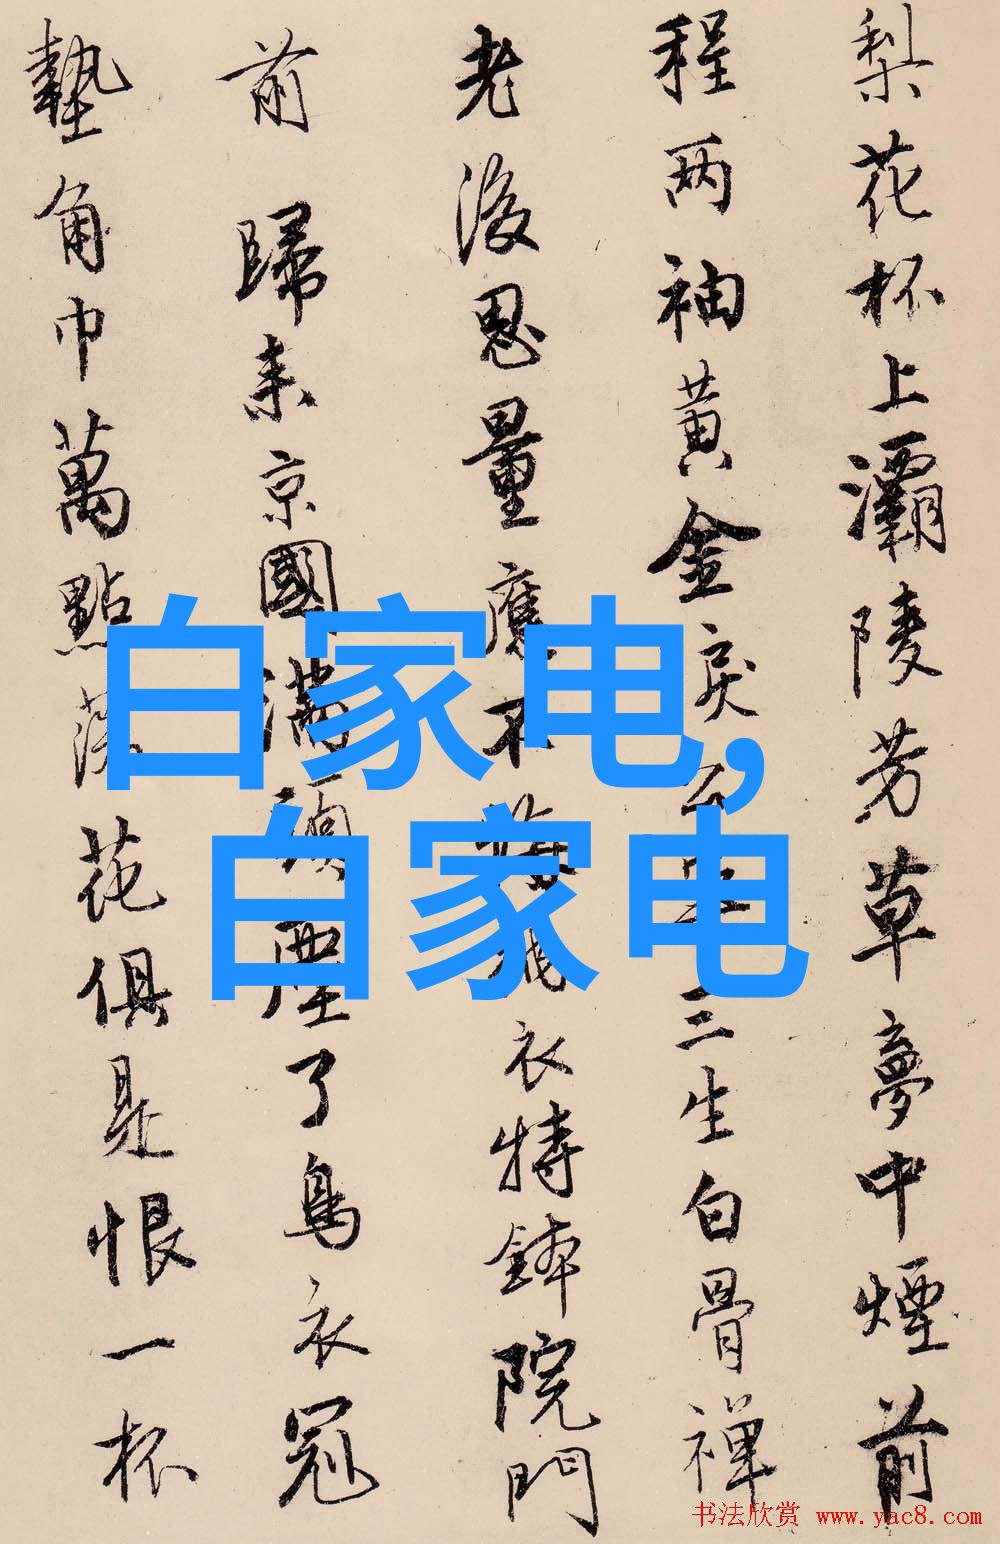 梨花杯上灞陵芳草夢中煙前
程两袖黄金淚三生白骨禪
老後思量應不衣持鉢院門
前歸来京國滿頭塵了烏衣冠
墊角巾萬點落花俱是恨一杯
白家电,
白家电
书法欣赏 www.yac8.com